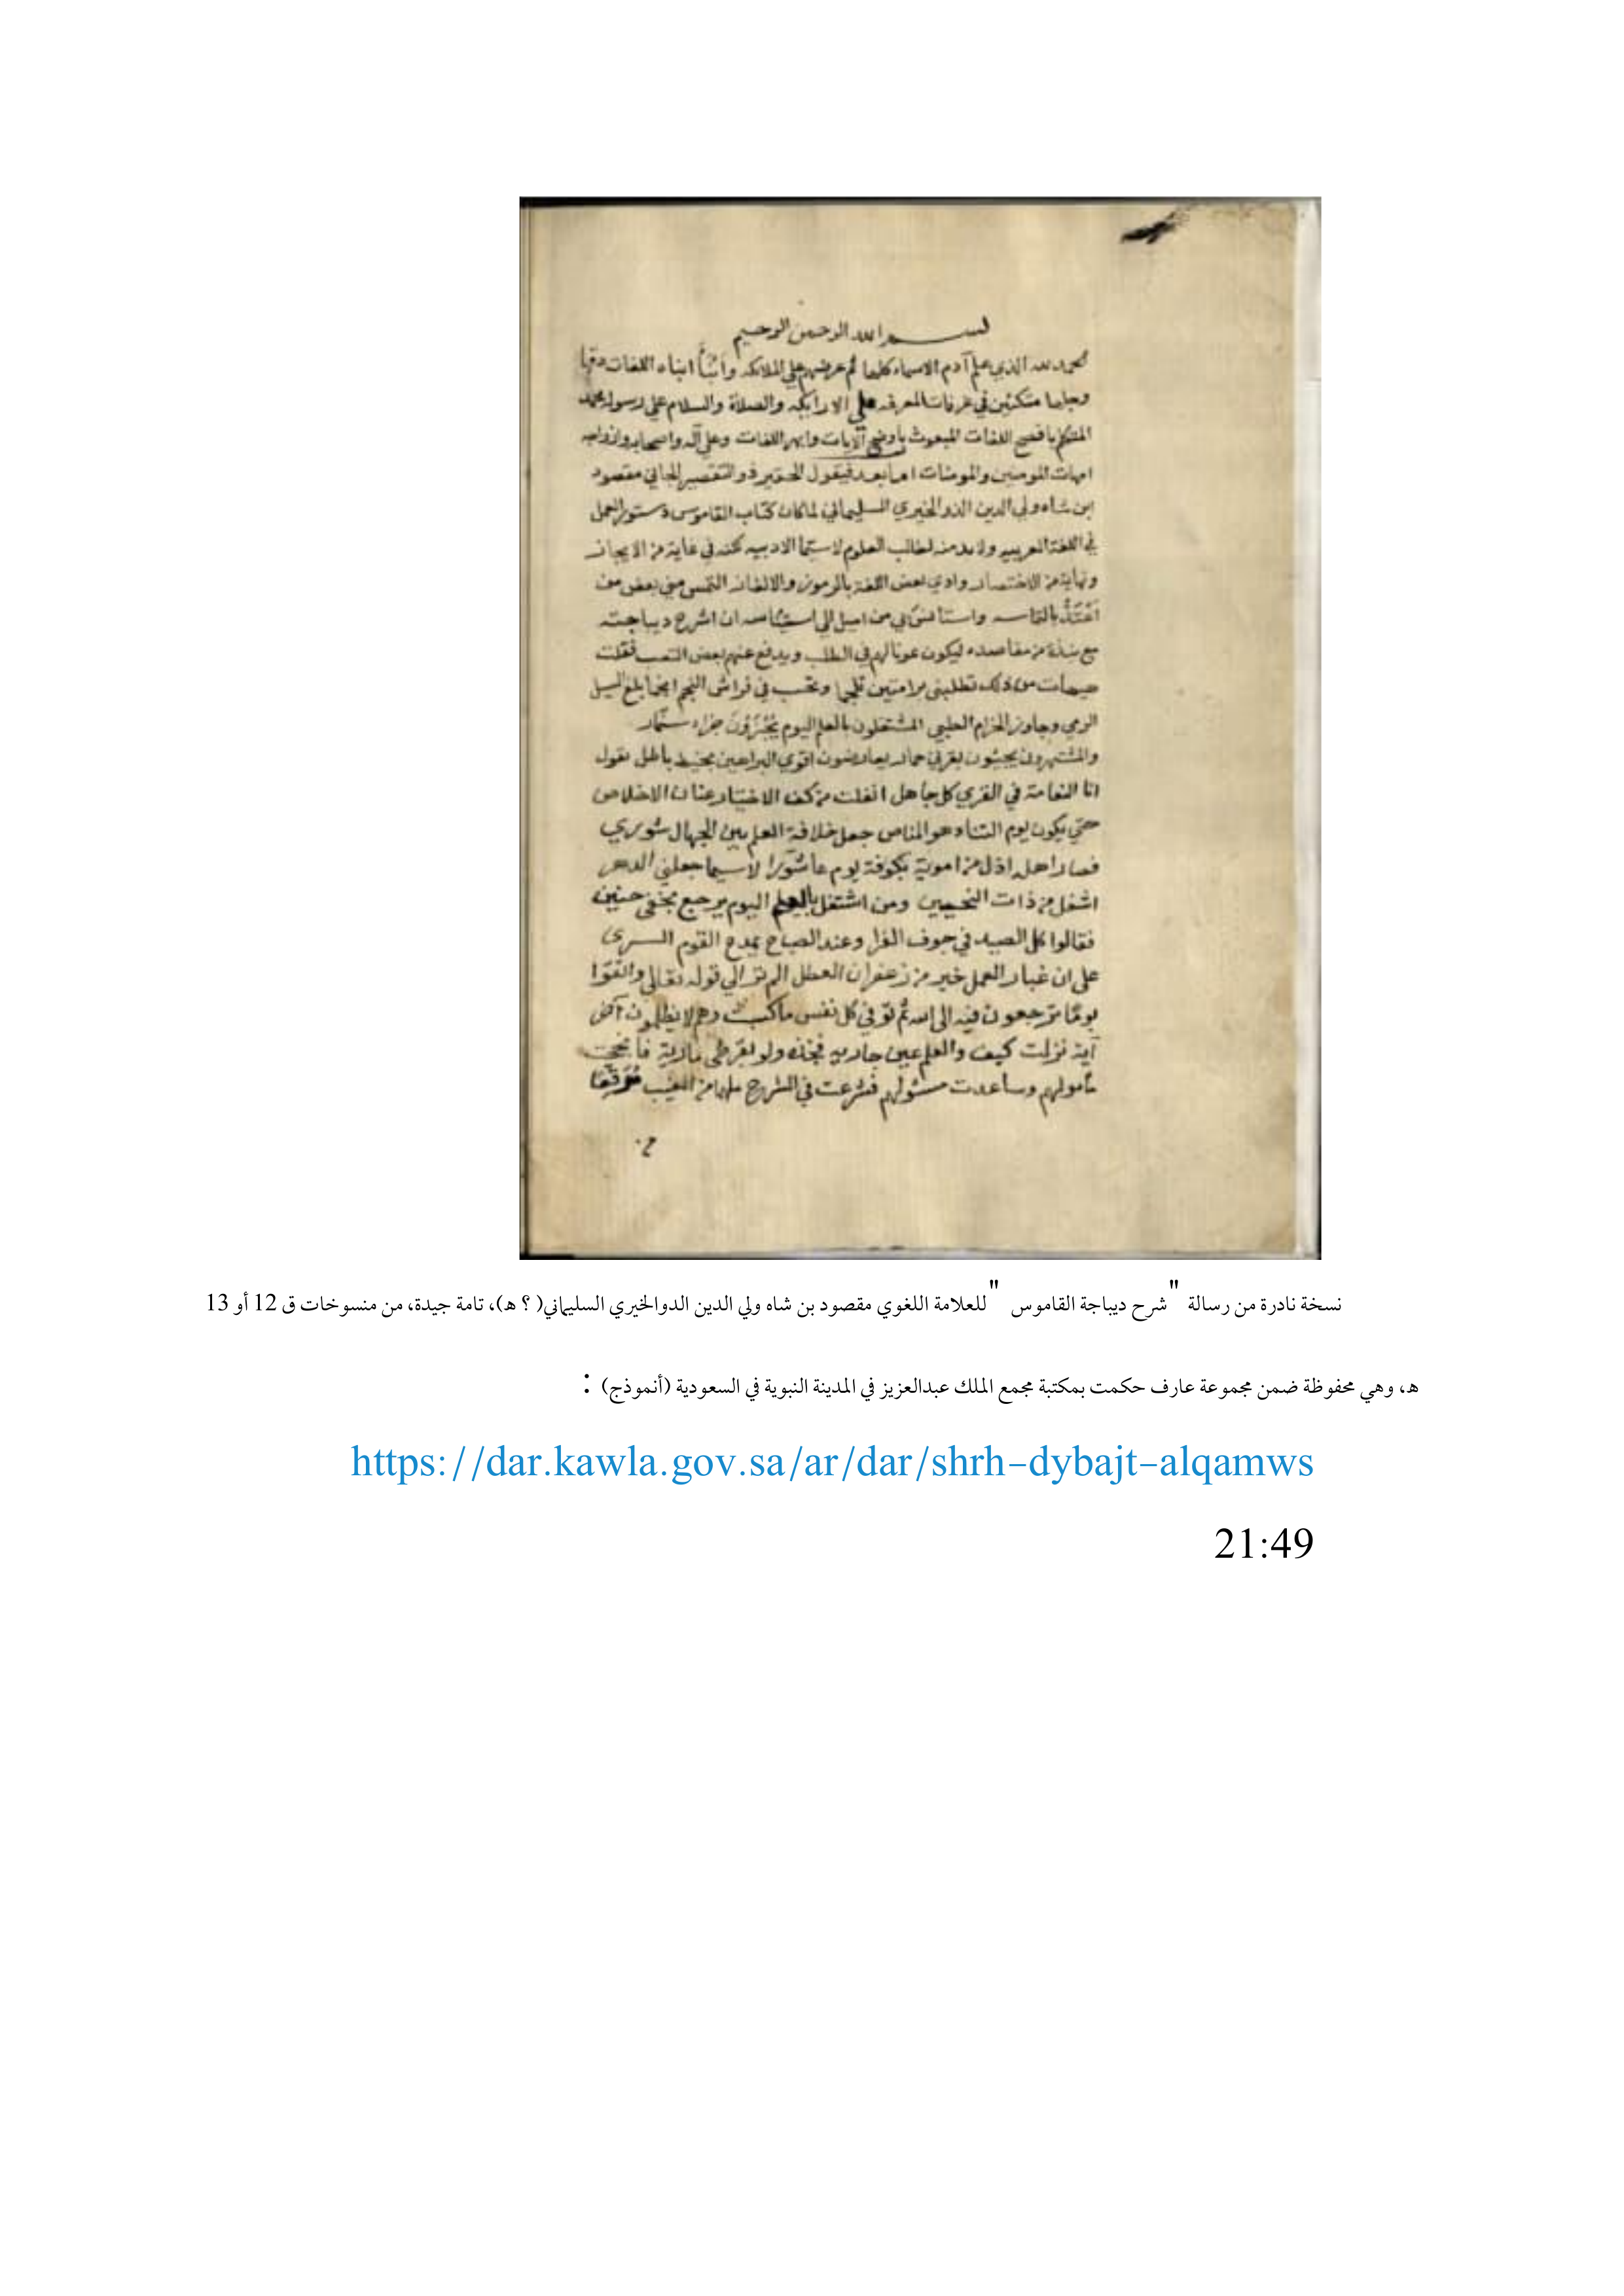 بسم الله الرحمن الرحيم
الحمد لله الذي علم آدم الاسماء كلها ثم عرضهم على الملائكه وأنشأ ابناء اللغات دقها
وجلها متكئين في غرفات المعرفه على الارايكه والصلاة والسلام على رسوله محمد
المتكلم بافصح اللغات المبعوث باوضح الآيات وابهر اللغات وعلى آله واصحابه وازواجه
امهات المومنين والمومنات اما بعد فيقول الحقير ذو التقصير الجاني مقصود
ابن شاه ولي الدين الذو الخيري السليماني لما كان كتاب القاموس دستور العمل
في اللغة العربيه ولا بد منه لطالب العلوم لا سيما الادبيه لكنه في غاية من الايجاز
ونهاية من الاختصار وادي بعض اللغة بالرموز والالغاز التمس مني بعض من
أعتد بالتماسه واستانس بي من اميل الى استيناسه ان اشرح ديباجته
مع نبذة من مقاصده ليكون عونا لهم في الطلب ويدفع عنهم بعض التعب فقلت
هيهات من ذلك تطلبني برامتين تلجما وتحسب في فراش النجم بلغ السيل
الربي وجاوز الحزام الطبي المشتغلون بالعلم اليوم يجزون جزاء سنمار
والمشتهرون يجيئون بقرني حمار يعارضون اقوى البراهين بخيط باطل نقول
انا النعامة في القرى كل جاهل انفلت من كف الاختيار عنان الاخلاص
حتى يكون يوم التناد هو المناص جعل خلافة العلم بين الجهال شوري
فصار اهله اذل من اموية بكوفة يوم عاشورا لاسيما جعلني الدهر
اشغل من ذات النحيين ومن اشتغل بالعلم اليوم يرجع بخفي حنين
فقالوا كل الصيد في جوف الفرا وعند الصباح يمدح القوم السرى
على ان غبار العمل خير من زعفران العطل الم تر الي قوله تعالى واتقوا
يوما ترجعون فيه الى الله ثم توفى كل نفس ما كسبت وهم لا يظلمون آخر
آية نزلت كيف والعلم عين جاريه فخذه ولو بقرطي مارية فانجحت
مامولهم وساعدت مسئولهم فشرعت في الشرح ملهما من الغيب
نسخة نادرة من رسالة "شرح ديباجة القاموس" للعلامة اللغوي مقصود بن شاه ولي الدين الدوالخيري السليماني( ؟ ه)، تامة جيدة، من منسوخات ق 12 أو 13
ه، وهي محفوظة ضمن مجموعة عارف حكمت بمكتبة مجمع الملك عبدالعزيز في المدينة النبوية في السعودية (أنموذج) :
https://dar.kawla.gov.sa/ar/dar/shrh-dybajt-alqamws
21:49